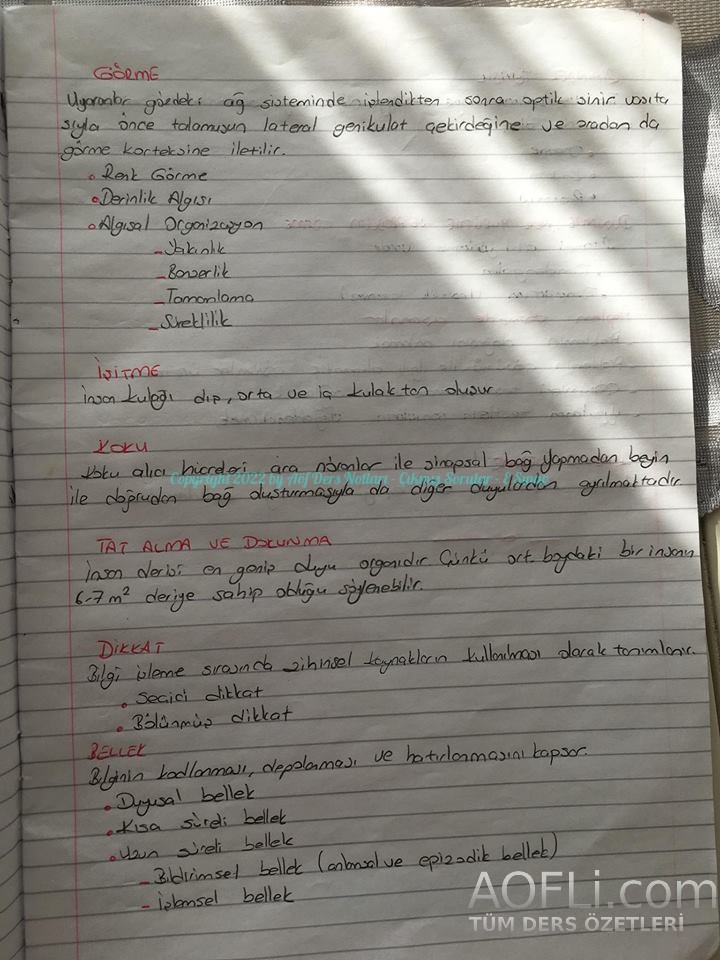 GÖRME
Uyaranlar gözdeki ağ sisteminde işlendikten sonra optik sinir vasıta
sıyla önce talamusun lateral genikulat çekirdeğine ve oradan da
görme korteksine iletilir.
• Renk Görme
• Derinlik Algısı
• Algısal Organizasyon
- Yakınlık
- Benzerlik
- Tamamlama
- Süreklilik
İŞİTME
İnsan kulağı dış, orta ve iç kulaktan oluşur
KOKU
Koku alıcı hücreleri ara nöronlar ile sinapsal bağ yapmadan beyin
ile doğrudan bağ oluşturmasıyla da diğer duyulardan ayrılmaktadır
Copyright 2022 by Aöf Ders Notları - Çıkmış Sorular -
TAT ALMA VE DOKUNMA
İnsan derisi en geniş duyu organıdır Çünkü ort. boydaki bir insanın
6-7 m² deriye sahip olduğu söylenebilir.
DİKKAT
Bilgi işleme sırasında zihinsel kaynakların kullanılması olarak tanımlanır.
• Seçici dikkat
• Bölünmüş dikkat
BELLEK
Bilginin kodlanması, depolanması ve hatırlanmasını kapsar.
• Duyusal bellek
• Kısa süreli bellek
• Uzun süreli bellek
- Bildirimsel bellek (anlamsal ve epizodik bellek)
- İşlemsel bellek
AOFLi.com
TÜM DERS ÖZETLERİ